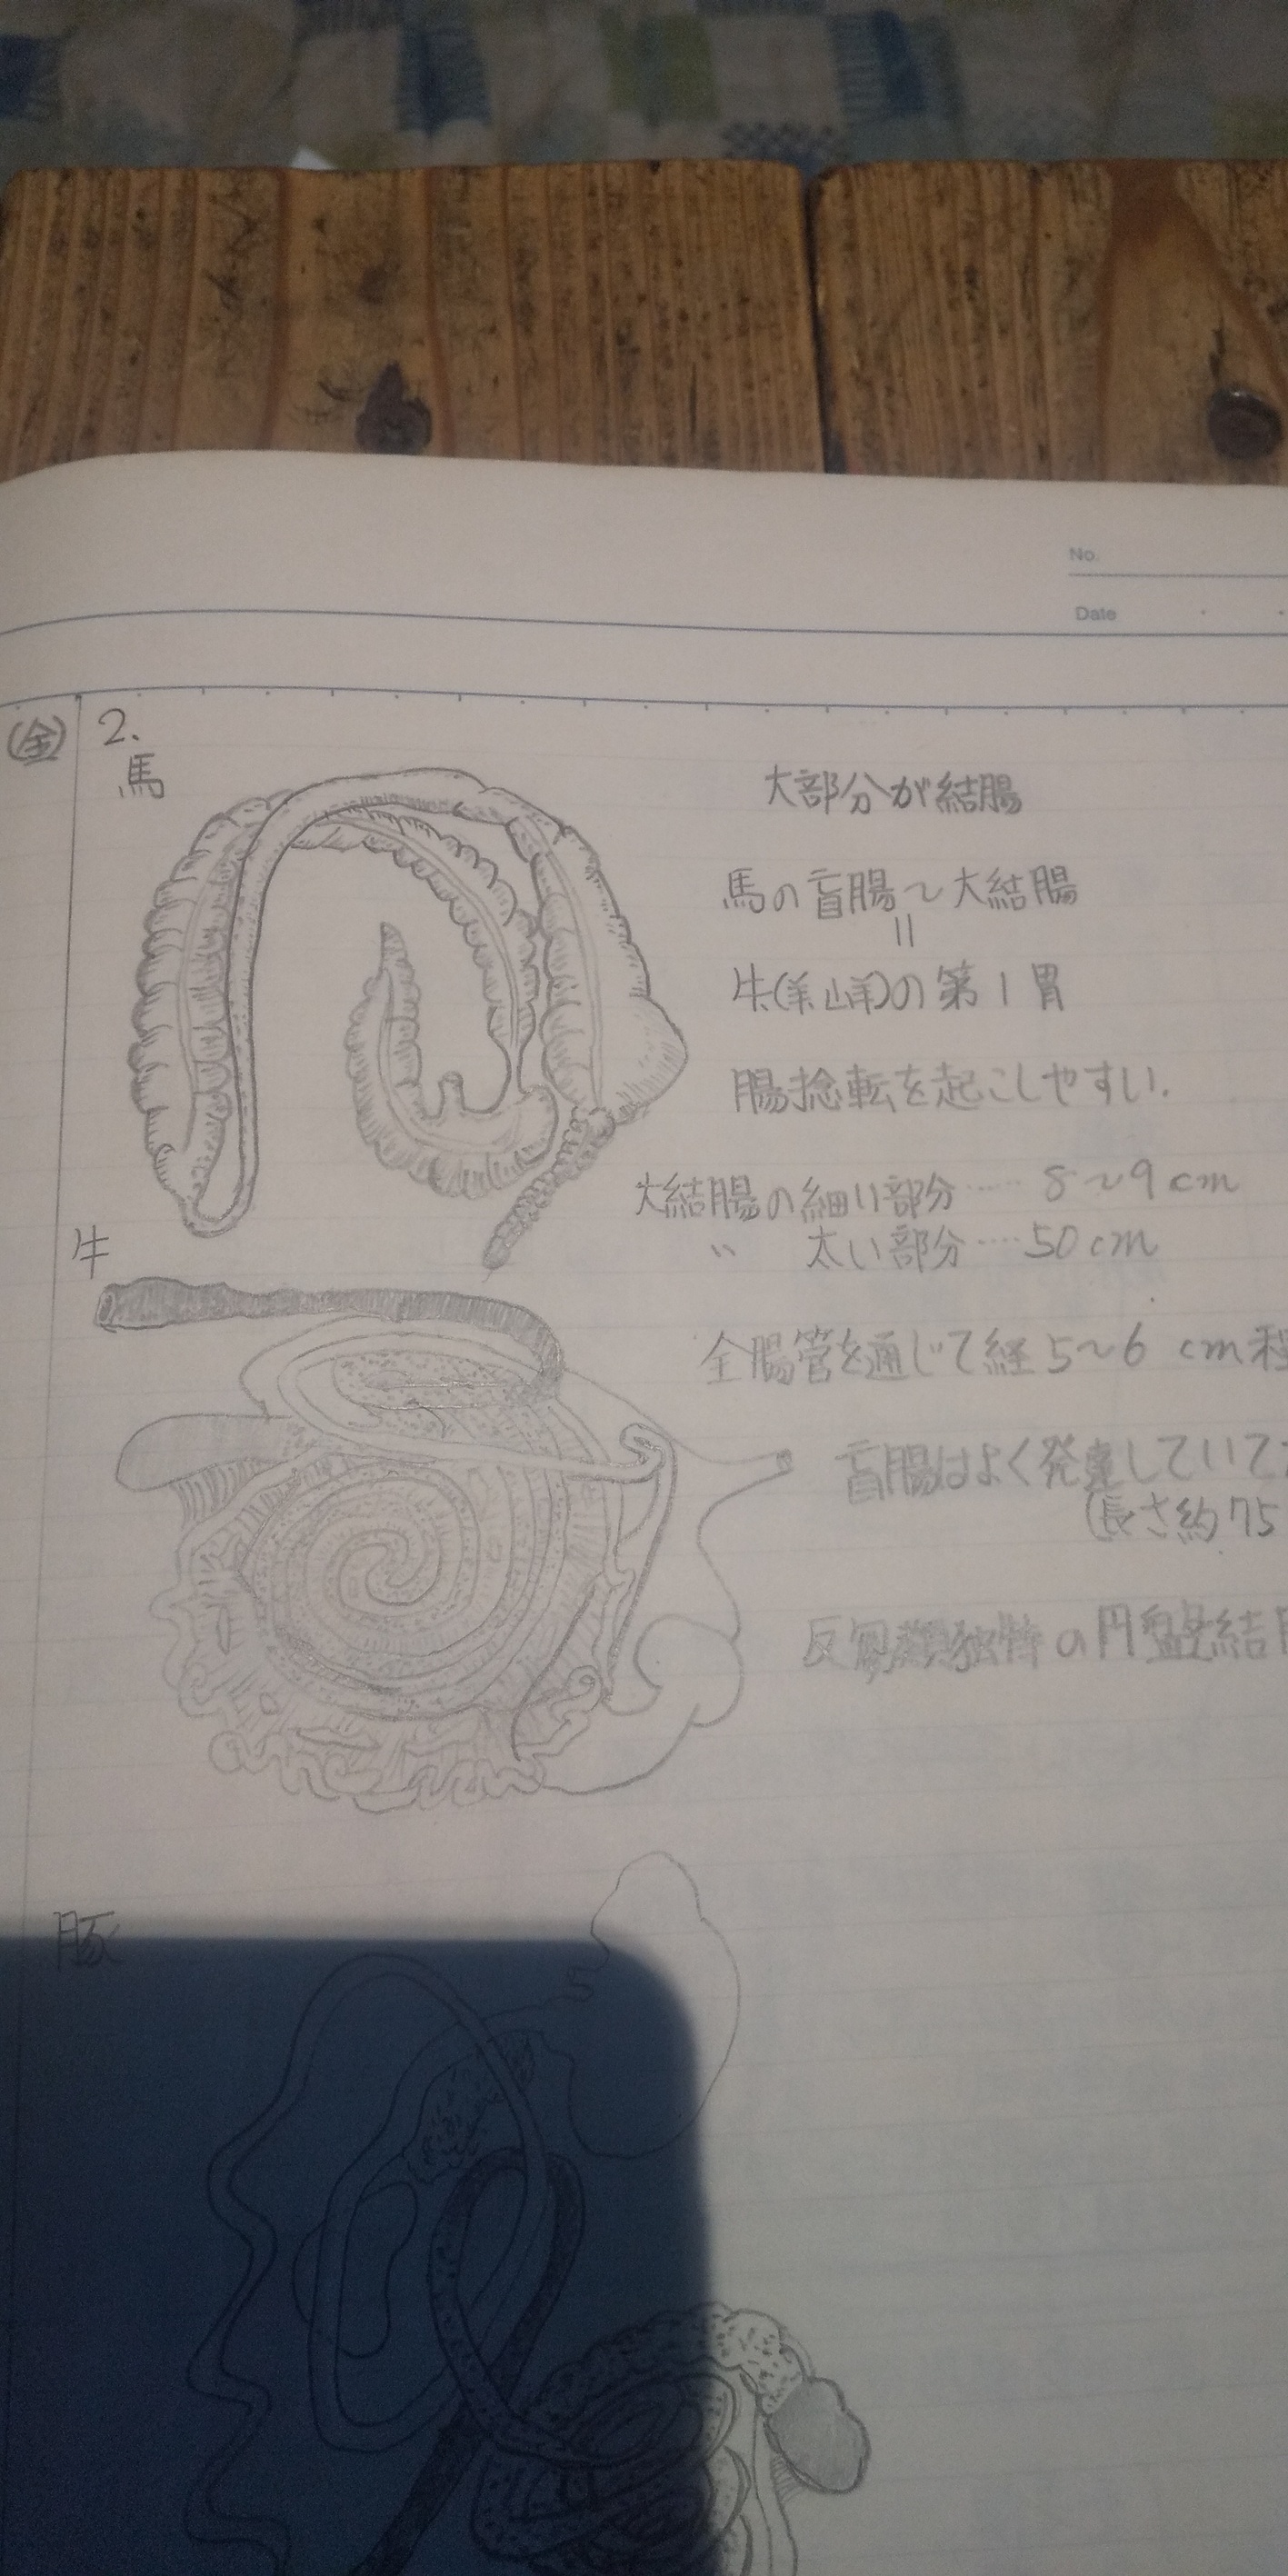 No.
Date
(金)
2.
馬
大部分が結腸
馬の盲腸〜大結腸
=
牛(羊山羊)の第1胃
腸捻転を起こしやすい.
大結腸の細い部分……8〜9cm
〃 太い部分…50cm
牛
全腸管を通じて経5〜6cm
盲腸はよく発達していて
(長さ約75
反芻類独特の円盤結
豚